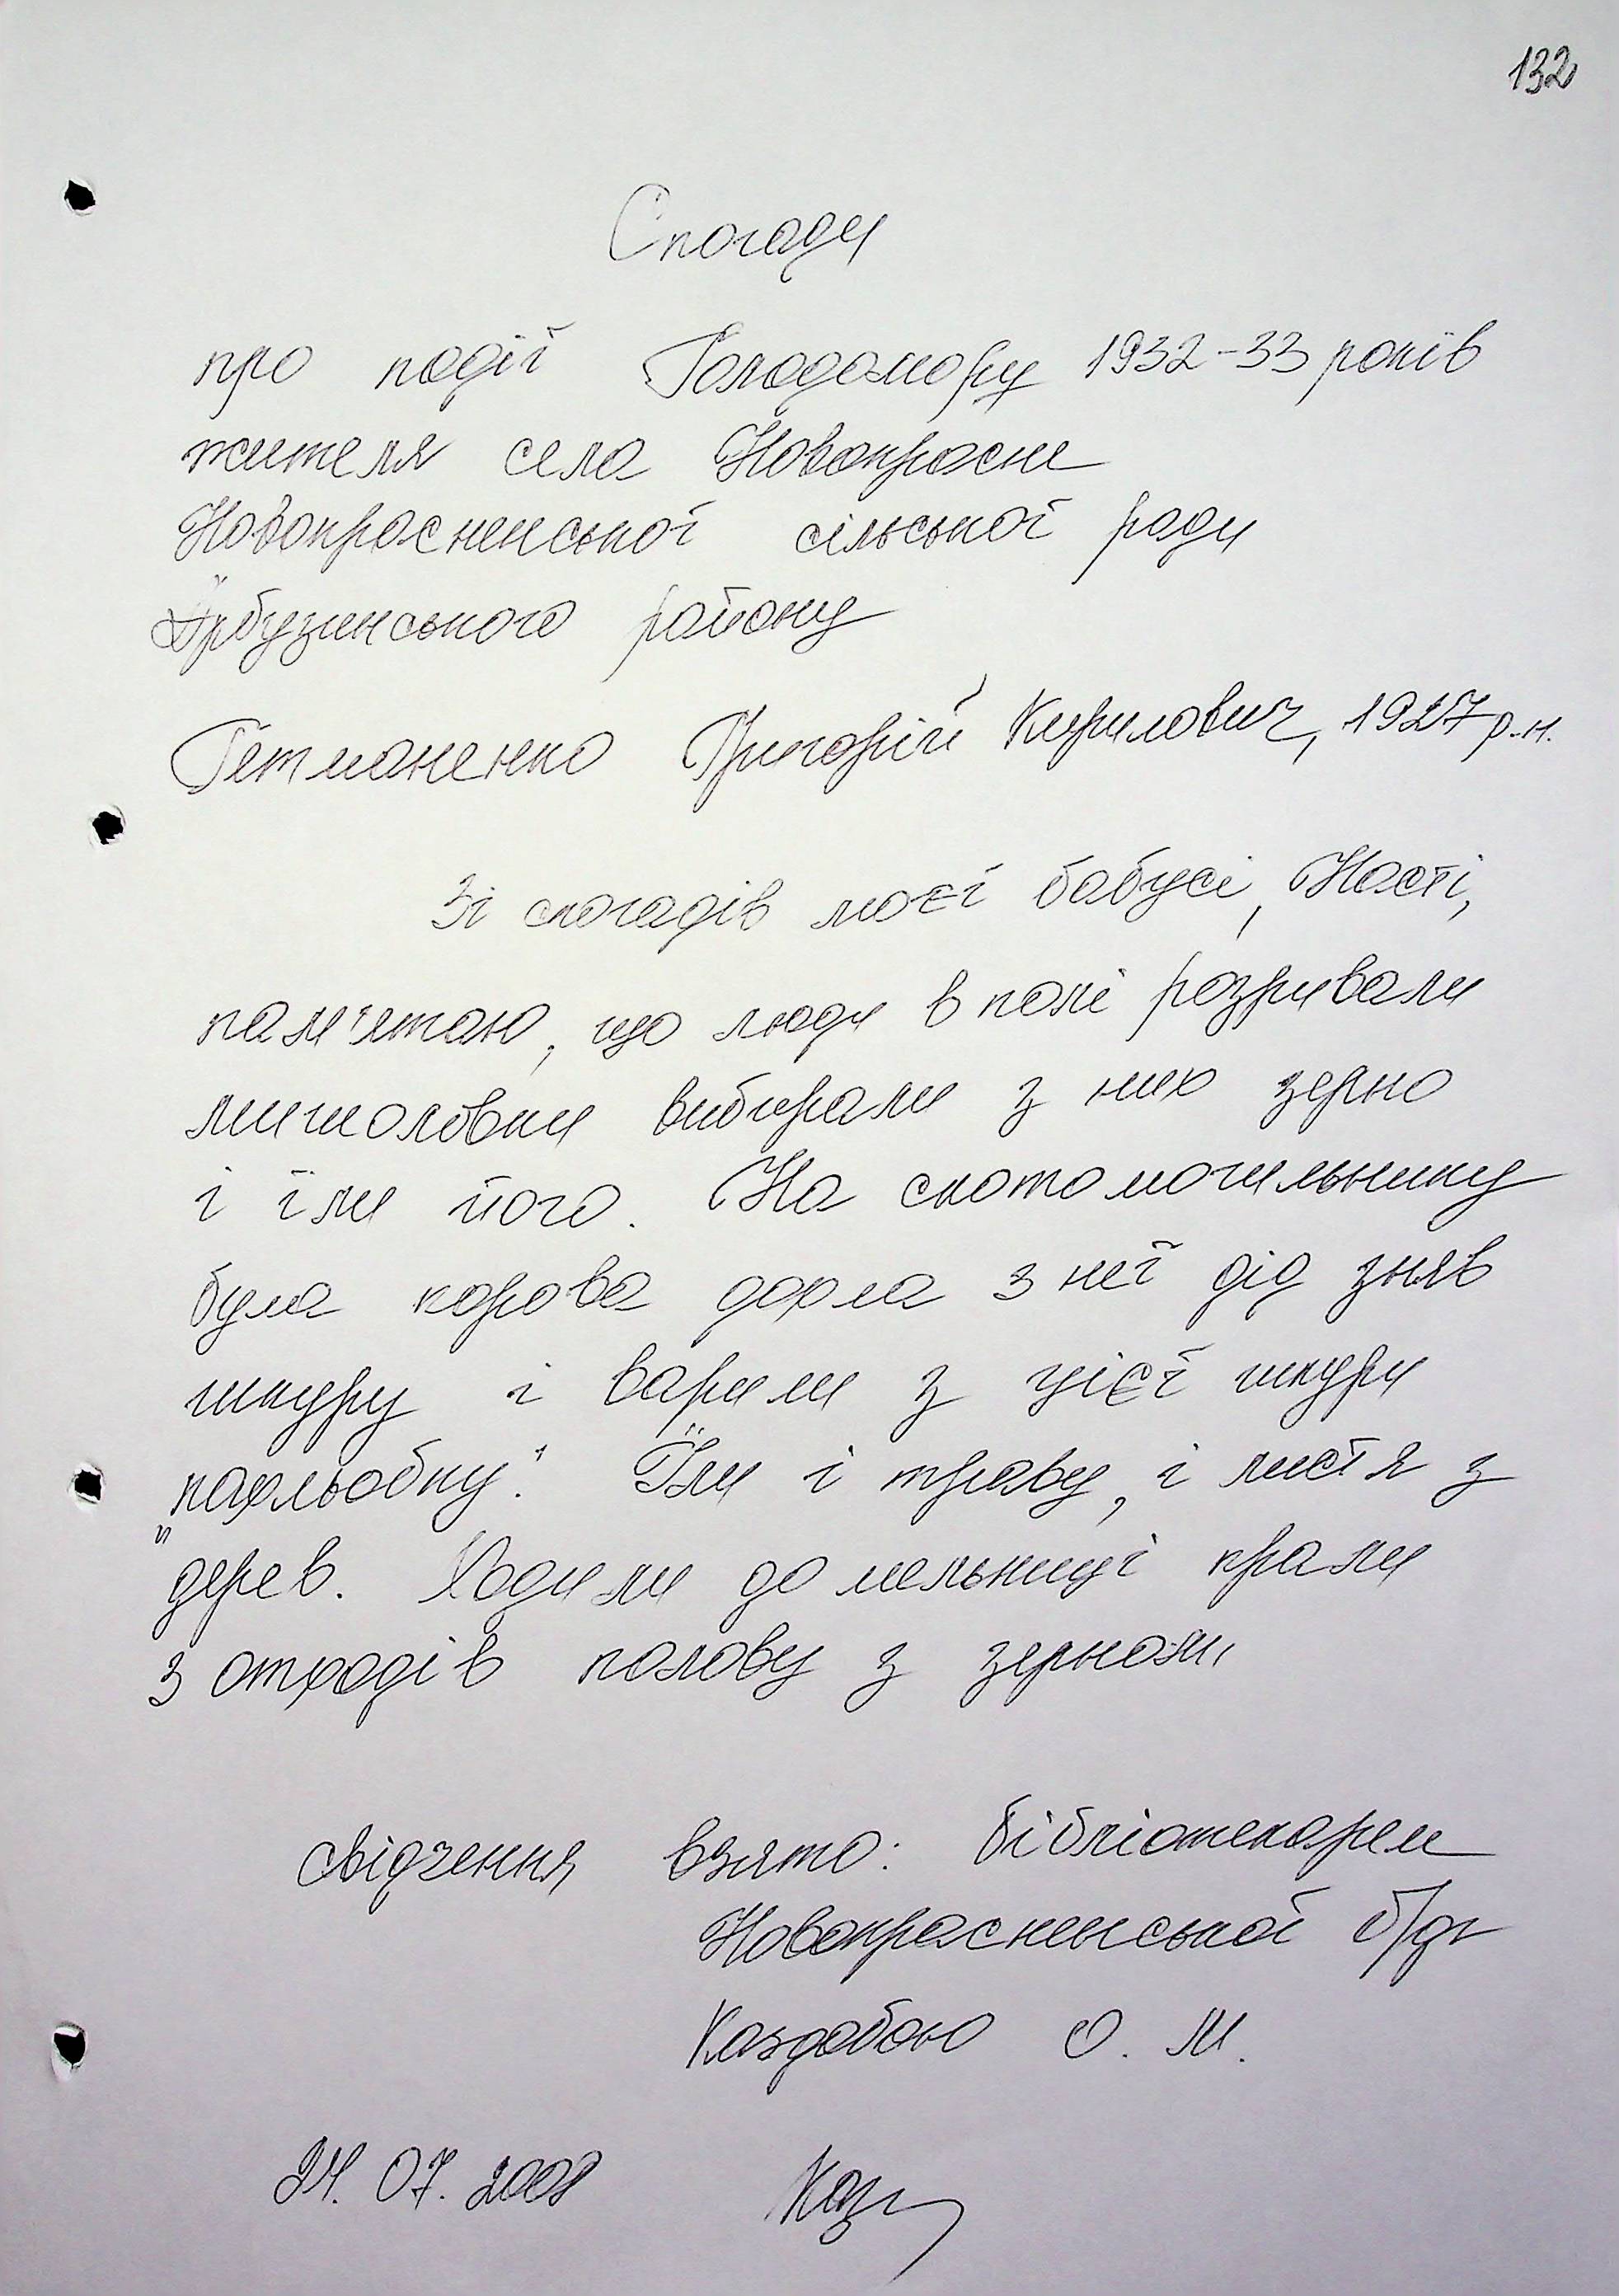 132
Спогади
про події Голодомору 1932-33 років
жителя села Новокрасне
Новокрасненської сільської ради
Арбузинського району
Гетманенко Григорій Кирилович, 1927 р.н.
Зі спогадів моєї бабусі, Насті,
пам'ятаю, що люди в полі розривали
мишоловки вибирали з них зерно
і їли його. На скотомогильнику
була корова дохла з неї дід зняв
шкуру і варили з цієї шкури
„похльобку". Їли і траву, і листя з
дерев. Ходили до мельниці крали
з отходів полову з зерном.
свідчення взято: бібліотекарем
Новокрасненської б/ф
Каздобою О. М.
24. 07. 2008